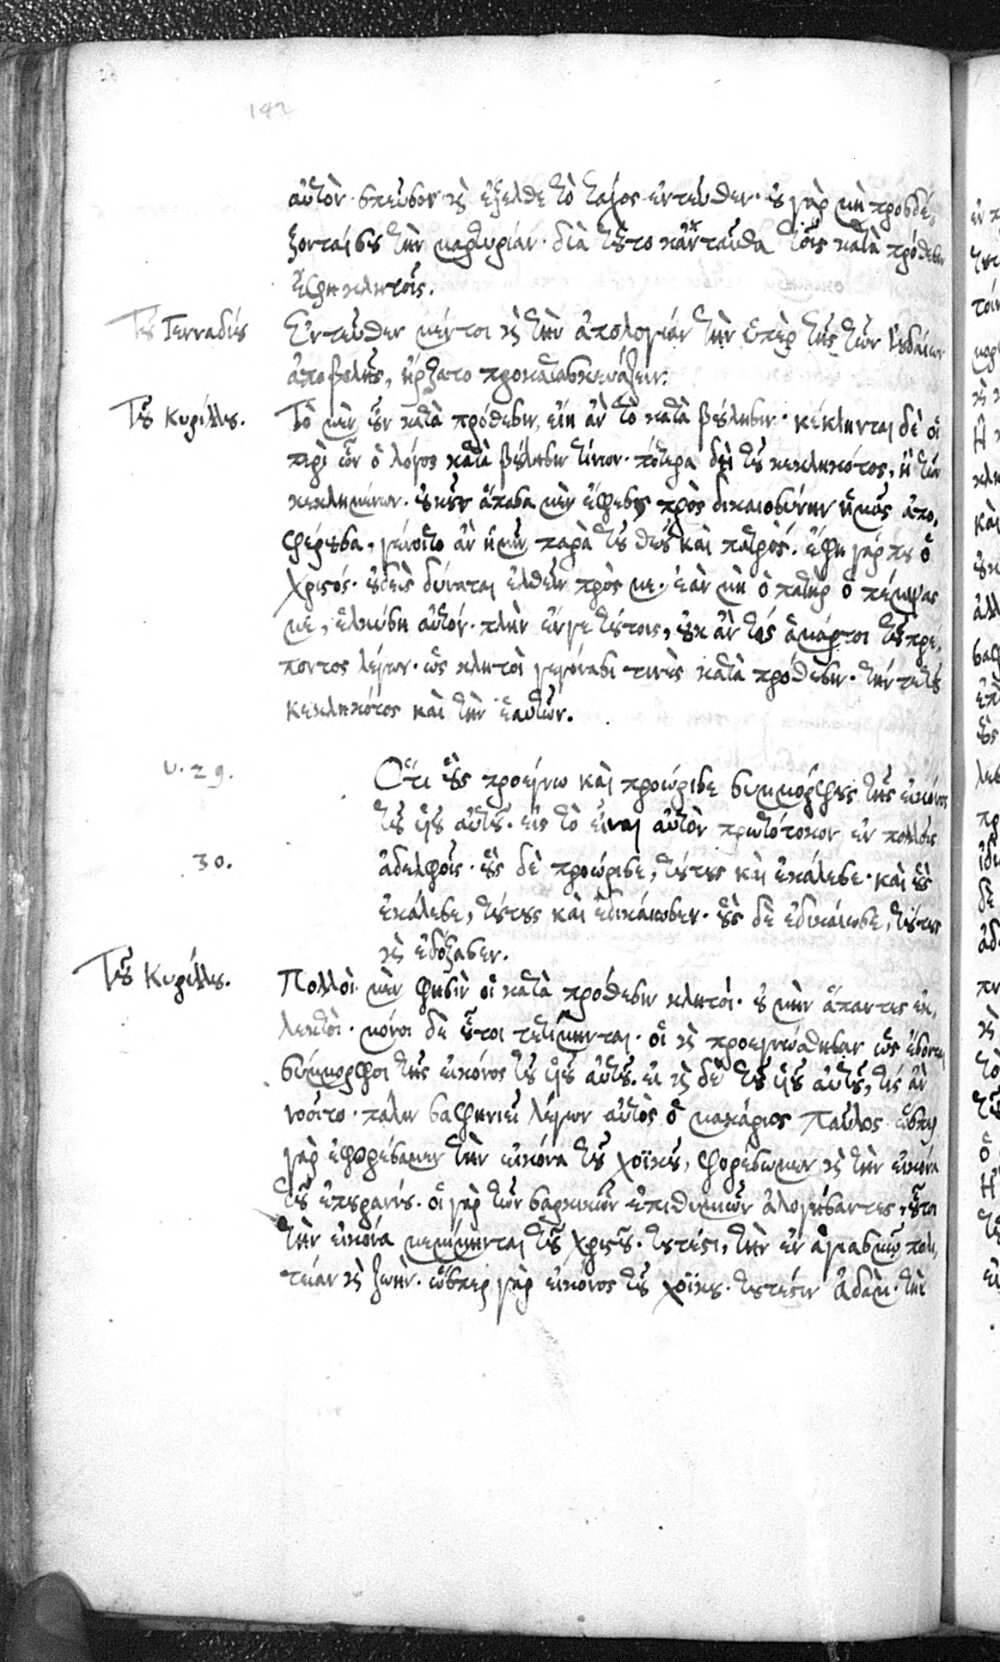 142
αὐτὸν· σπεῦσον καὶ ἔξελθε τὸ τάχος ἐντεῦθεν· οὐ γὰρ μὴ προσδέ-
ξονταί σου τὴν μαρτυρίαν· διὰ τοῦτο κἀνταῦθα τοῖς κατὰ πρόθεσιν
ἔφη κλητοῖς.
Τοῦ Γενναδίου Ἐντεῦθεν μέντοι καὶ τὴν ἀπολογίαν τὴν ὑπὲρ τῆς τῶν Ἰουδαίων
ἀποβολῆς, ἤρξατο προκατασκευάζειν.
Τοῦ Κυρίλλου. Τὸ μὲν οὖν κατὰ πρόθεσιν, εἴη ἂν τὸ κατὰ βούλησιν· κέκληνται δὲ οἱ
περὶ ὧν ὁ λόγος κατὰ βούλησιν τίνων· πότερα δὴ τοῦ κεκληκότος, ἢ τῶν
κεκλημένων· οὐκοῦν ἅπασα μὲν ἔφεσις πρὸς δικαιοσύνην ἡμᾶς ἀπο-
φέρουσα, γένοιτο ἂν ἡμῖν παρὰ τοῦ θεοῦ καὶ πατρός. ἔφη γάρ που ὁ
Χριστός· οὐδεὶς δύναται ἐλθεῖν πρός με· ἐὰν μὴ ὁ πατὴρ ὁ πέμψας
με, ἑλκύσῃ αὐτόν· πλὴν ἔν γε τούτοις, οὐκ ἂν τὶς ἁμάρτοι τοῦ πρέ-
ποντος λέγων· ὡς κλητοὶ γεγόνασί τινες κατὰ πρόθεσιν· τήν τε τοῦ
κεκληκότος καὶ τὴν ἑαυτῶν.
v. 29. Ὅτι οὓς προέγνω καὶ προώρισε συμμόρφους τῆς εἰκόνος
τοῦ υἱοῦ αὐτοῦ· εἰς τὸ εἶναι αὐτὸν πρωτότοκον ἐν πολλοῖς
30. ἀδελφοῖς· οὓς δὲ προώρισε, τούτους καὶ ἐκάλεσε· καὶ οὓς
ἐκάλεσε, τούτους καὶ ἐδικαίωσεν· οὓς δὲ ἐδικαίωσε, τούτους
καὶ ἐδόξασεν.
Τοῦ Κυρίλλου. Πολλοὶ μὲν φησὶν οἱ κατὰ πρόθεσιν κλητοί· οὐ μὴν ἅπαντες ἐκ-
λεκτοί· μόνοι δὲ οὗτοι τετίμηνται· οἳ καὶ προεγνώσθησαν ὡς ἔσονται
σύμμορφοι τῆς εἰκόνος τοῦ υἱοῦ αὐτοῦ. εἰ καὶ δὲ τοῦ υἱοῦ αὐτοῦ, τίς ἂν
νοοῖτο· πάλιν σαφηνιεῖ λέγων αὐτὸς ὁ μακάριος Παῦλος· ὥσπερ
γὰρ ἐφορέσαμεν τὴν εἰκόνα τοῦ χοϊκοῦ, φορέσωμεν καὶ τὴν εἰκόνα
τοῦ ἐπουρανίου. οἱ γὰρ τῶν σαρκικῶν ἐπιθυμιῶν ἀλογήσαντες, οὗτοι
τὴν εἰκόνα μεμίμηνται τοῦ Χριστοῦ· τουτέστι, τὴν ἐν ἁγιασμῷ πολι-
τείαν καὶ ζωήν. ὥσπερ γὰρ εἰκόνος τοῦ χοϊκοῦ· τουτέστιν Ἀδὰμ· τὴν